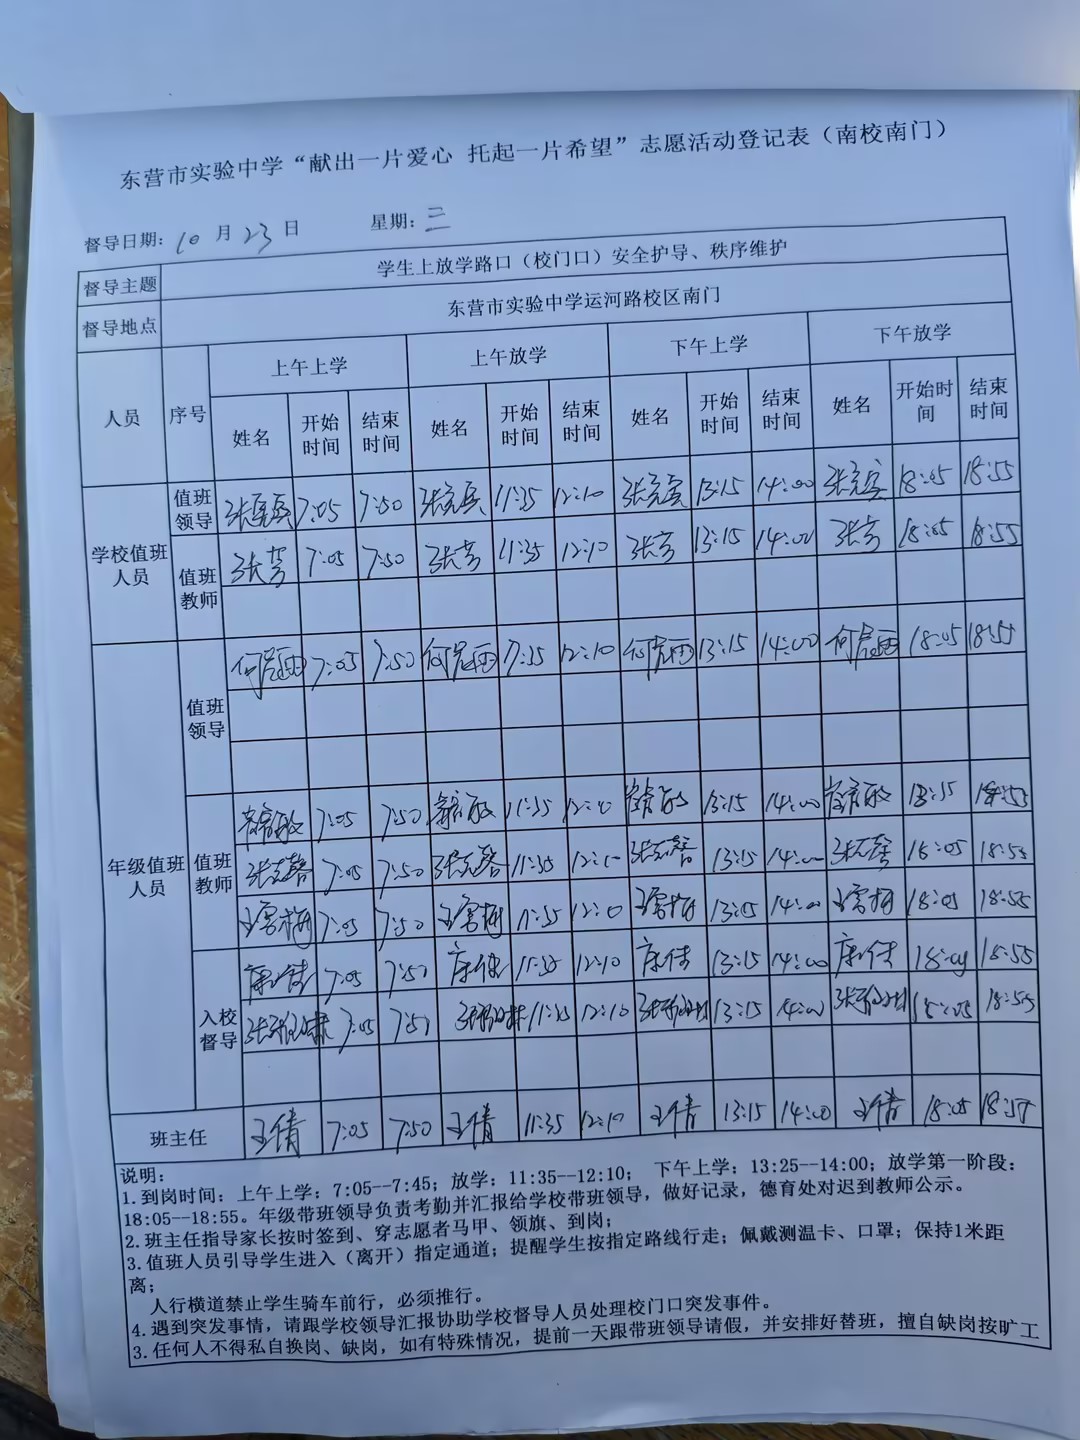 东营市实验中学“献出一片爱心 托起一片希望”志愿活动登记表（南校南门）
督导日期：10月23日 星期：三
督导主题 学生上放学路口（校门口）安全护导、秩序维护
督导地点 东营市实验中学运河路校区南门
人员 序号 上午上学 上午放学 下午上学 下午放学
姓名 开始时间 结束时间 姓名 开始时间 结束时间 姓名 开始时间 结束时间 姓名 开始时间 结束时间
学校值班人员 值班领导 7:05 7:50 11:35 12:10 13:15 14:00 18:05 18:55
值班教师 张芳 7:05 7:50 张芳 11:35 12:10 张芳 13:15 14:00 张芳 18:05 18:55
年级值班人员 值班领导 7:05 7:50 7:35 12:10 13:15 14:00 18:05 18:55
值班教师 7:05 7:50 11:35 12:10 13:15 14:00
7:05 7:50 11:35 12:10 13:15 14:00 18:05 18:55
王雪梅 7:05 7:50 王雪梅 11:35 12:10 王雪梅 13:15 14:00 王雪梅 18:05 18:55
入校督导 康佳 7:05 7:50 康佳 11:35 12:10 康佳 13:15 14:00 康佳 18:05 18:55
7:05 7:50 11:35 12:10 13:15 14:00 18:05 18:55
班主任 王倩 7:05 7:50 王倩 11:35 12:10 王倩 13:15 14:00 王倩 18:05 18:55
说明：
1.到岗时间：上午上学：7:05--7:45；放学：11:35--12:10； 下午上学：13:25--14:00；放学第一阶段：
18:05--18:55。年级带班领导负责考勤并汇报给学校带班领导，做好记录，德育处对迟到教师公示。
2.班主任指导家长按时签到、穿志愿者马甲、领旗、到岗；
3.值班人员引导学生进入（离开）指定通道；提醒学生按指定路线行走；佩戴测温卡、口罩；保持1米距
离；
人行横道禁止学生骑车前行，必须推行。
4.遇到突发事情，请跟学校领导汇报协助学校督导人员处理校门口突发事件。
3.任何人不得私自换岗、缺岗，如有特殊情况，提前一天跟带班领导请假，并安排好替班，擅自缺岗按旷工